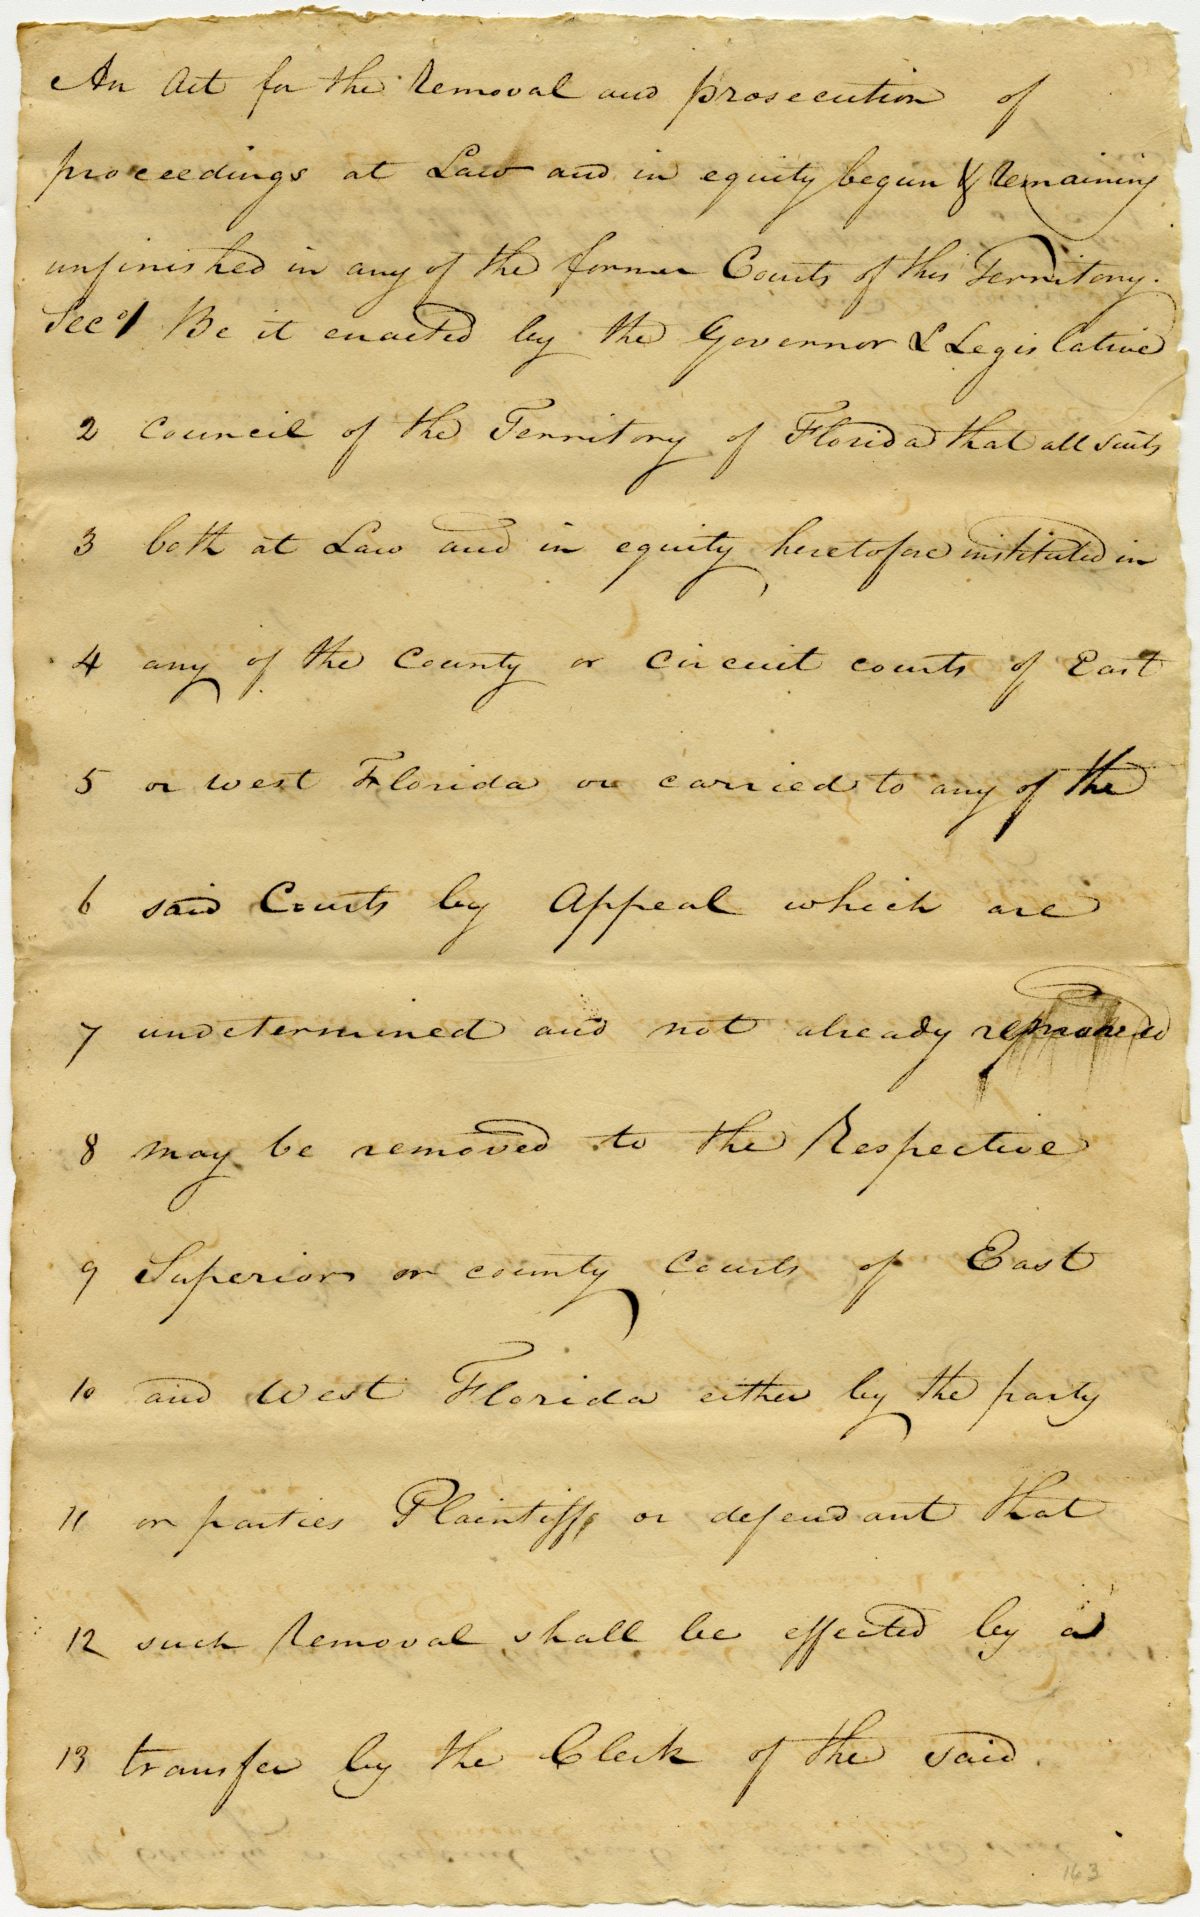 An Act for the Removal and prosecution of
proceedings at Law and in equity begun & Remaining
unfinished in any of the former Courts of this Territory.
Sec 1 Be it enacted by the Governor & Legislative
2 Council of the Territory of Florida that all suits
3 both at Law and in equity heretofore instituted in
4 any of the County or Circuit courts of East
5 or west Florida or carried to any of the
6 said Courts by Appeal which are
7 undetermined and not already
8 may be removed to the Respective
9 Superior or county Courts of East
10 and West Florida either by the party
11 or parties Plaintiff or defendant that
12 such Removal shall be effected by a
13 transfer by the Clerk of the said
163